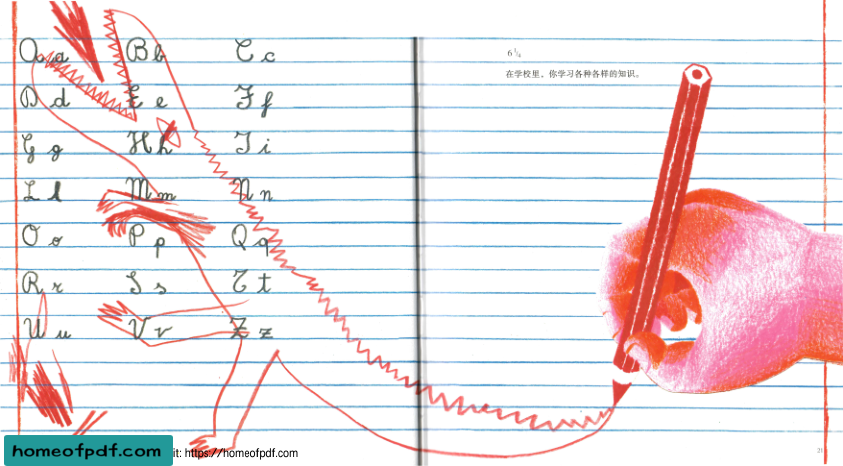 A a B b C c
D d E e F f
G g H h I i
L l M m N n
O o P p Q q
R r S s T t
U u V v Z z
6 ¼
在学校里，你学习各种各样的知识。
homeofpdf.com
it: https://homeofpdf.com